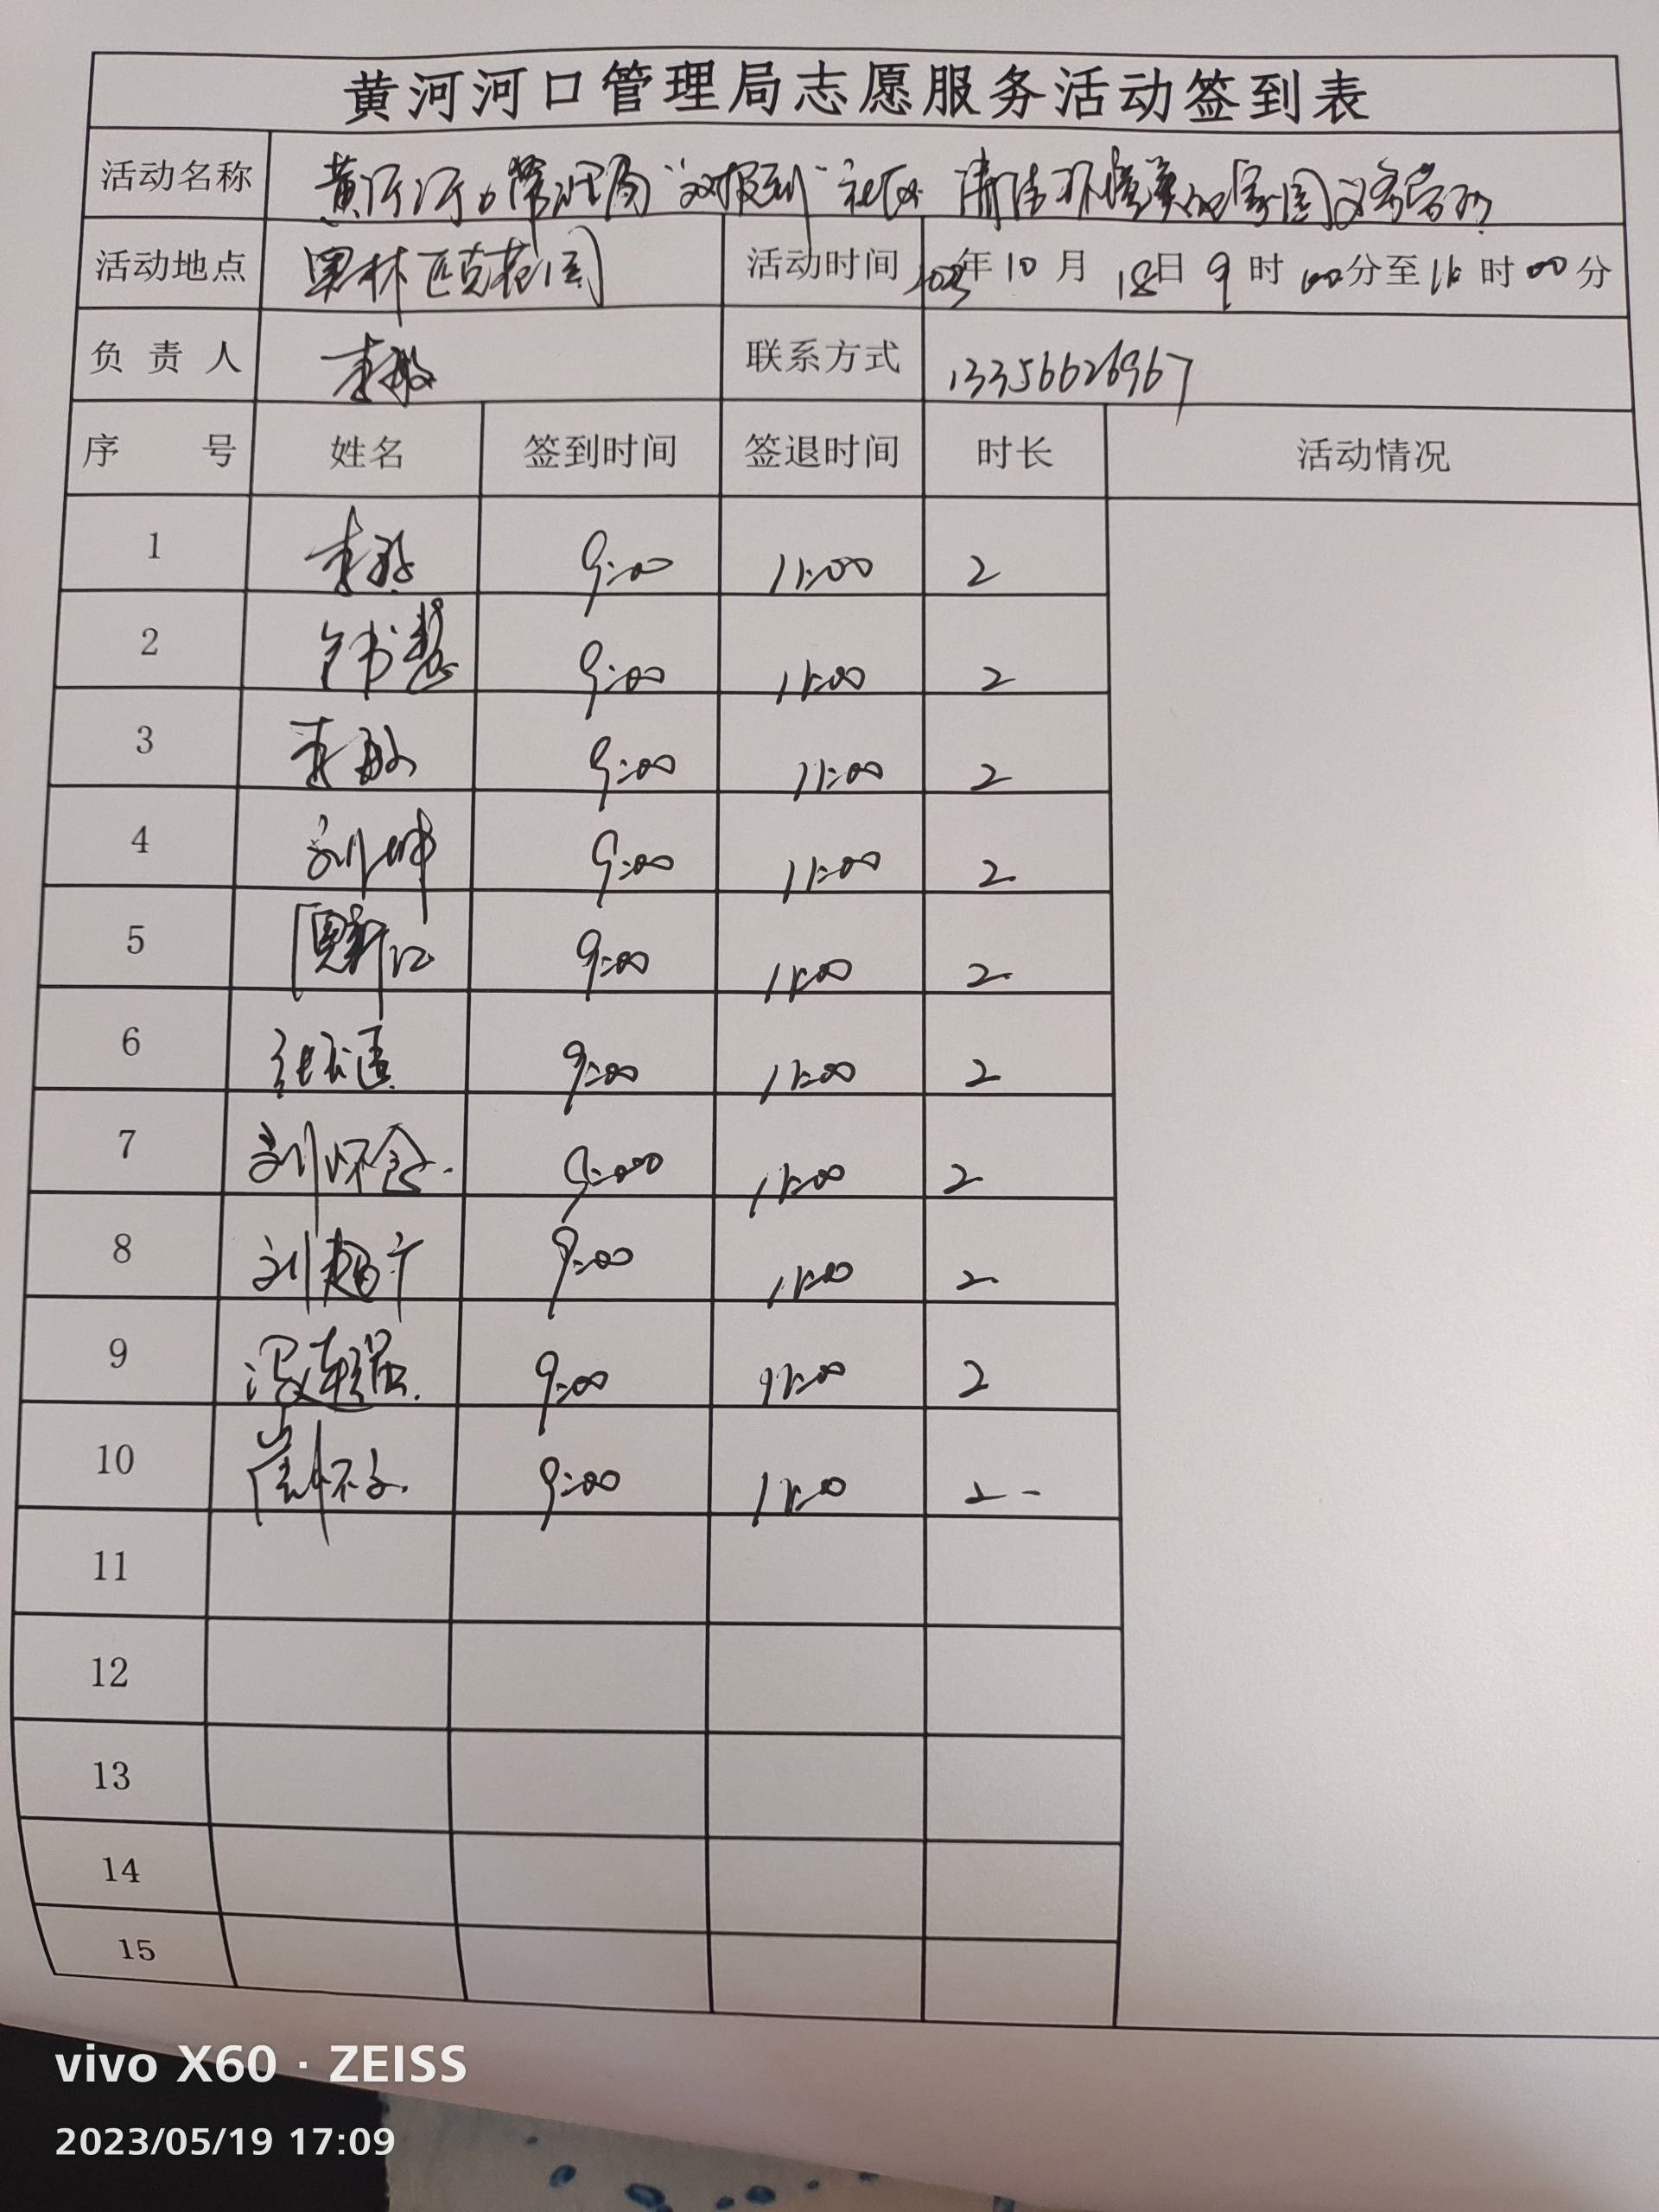 黄河河口管理局志愿服务活动签到表
活动名称 黄河河口管理局"双报到"社区 清洁环境美化家园义务劳动
活动地点 活动时间 年10月18日9时00分至 时00分
负责人 李敏 联系方式 13356626967
序号 姓名 签到时间 签退时间 时长 活动情况
1 9:00 11:00 2
2 9:00 11:00 2
3 李敏 9:00 11:00 2
4 刘坤 9:00 11:00 2
5 9:00 11:00 2
6 9:00 11:00 2
7 刘怀 9:00 11:00 2
8 刘 9:00 11:00 2
9 9:00 11:00 2
10 崔怀 9:00 11:00 2
11
12
13
14
15
vivo X60 · ZEISS
2023/05/19 17:09